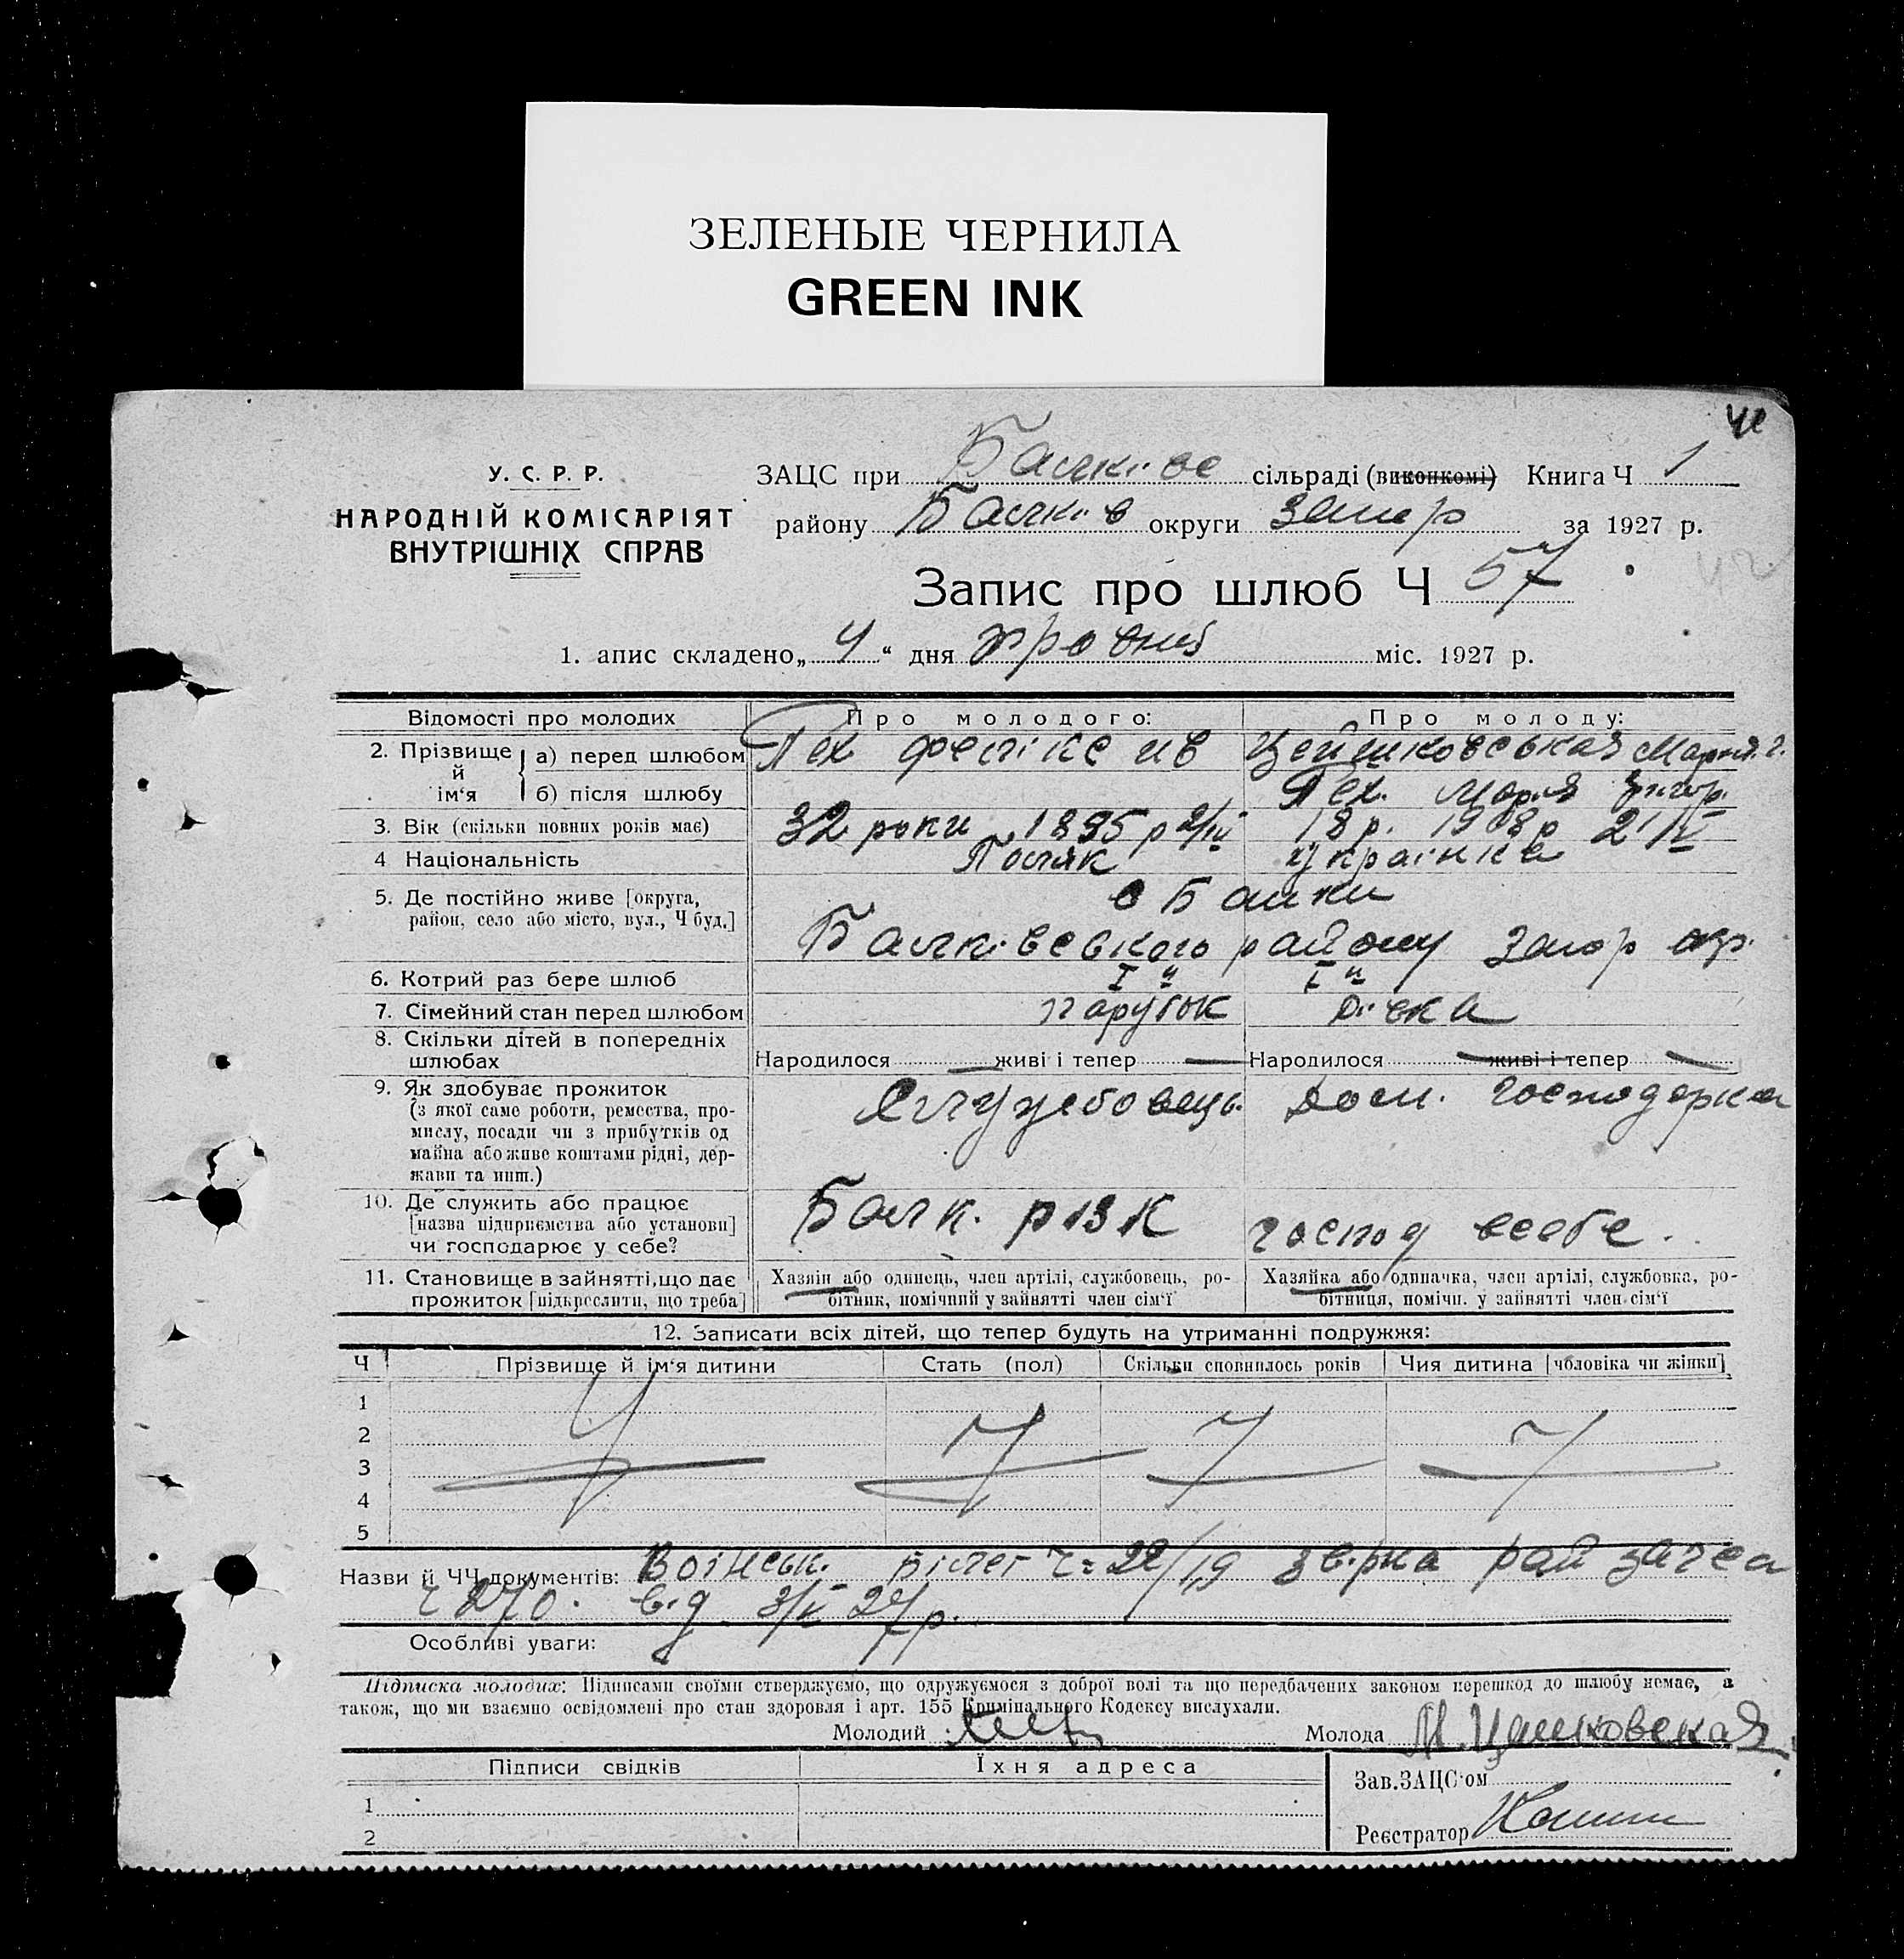 ЗЕЛЕНЫЕ ЧЕРНИЛА
GREEN INK
У. С. Р. Р.
НАРОДНІЙ КОМІСАРІЯТ
ВНУТРІШНІХ СПРАВ
ЗАЦС при Балків сільраді (виконкомі) Книга Ч 1
району Балків округи Запор за 1927 р.
Запис про шлюб Ч 57
1. апис складено „ 4 “ дня міс. 1927 р.
Відомості про молодих
Про молодого:
Про молоду:
2. Прізвище й ім‘я
а) перед шлюбом
Пех Фелікс Ив
Марія. г.
б) після шлюбу
Пех. Мария Григор.
3. Вік (скільки повних років має)
32 роки 1895 р 2/IV
18 р. 1908 р 2/IV
4 Національність
Поляк
українка
5. Де постійно живе [округа,
район, село або місто, вул., Ч буд.]
с Балки
Балківського району Запор окр.
6. Котрий раз бере шлюб
I й
I й
7. Сімейний стан перед шлюбом
парубок
дівка
8. Скільки дітей в попередніх
шлюбах
Народилося — живі і тепер —
Народилося — живі і тепер —
9. Як здобуває прожиток
(з якої саме роботи, ремества, про-
мислу, посади чи з прибутків од
майна або живе коштами рідні, дер-
жави та инш.)
Службовець
Дом. господарка
10. Де служить або працює
[назва підприємства або установи]
чи господарює у себе?
Балк. РВК
господ всебе.
11. Становище в зайнятті, що дає
прожиток [підкреслити, що треба]
Хазяїн або одинець, член артілі, службовець, ро-
бітник, помічний у зайнятті член сім‘ї
Хазяйка або одиначка, член артілі, службовка, ро-
бітниця, помічн. у зайнятті член сім‘ї
12. Записати всіх дітей, що тепер будуть на утриманні подружжя:
Ч Прізвище й ім‘я дитини Стать (пол) Скільки сповнилось років Чия дитина [чоловіка чи жінки]
1
2
3
4
5
Назви й ЧЧ документів: Воінськ. білет Ч= 22/19 рай загса
Ч 270. від 3/X 27 р.
Особливі уваги:
Підписка молодих: Підписами своїми стверджуємо, що одружуємося з доброї волі та що передбачених законом перешкод до шлюбу немає, а
також, що ми взаємно освідомлені про стан здоровля і арт. 155 Кримінального Кодексу вислухали.
Молодий Молода М. Цешковская
Підписи свідків Їхня адреса
Зав. ЗАЦС‘ом
1
Реєстратор
2